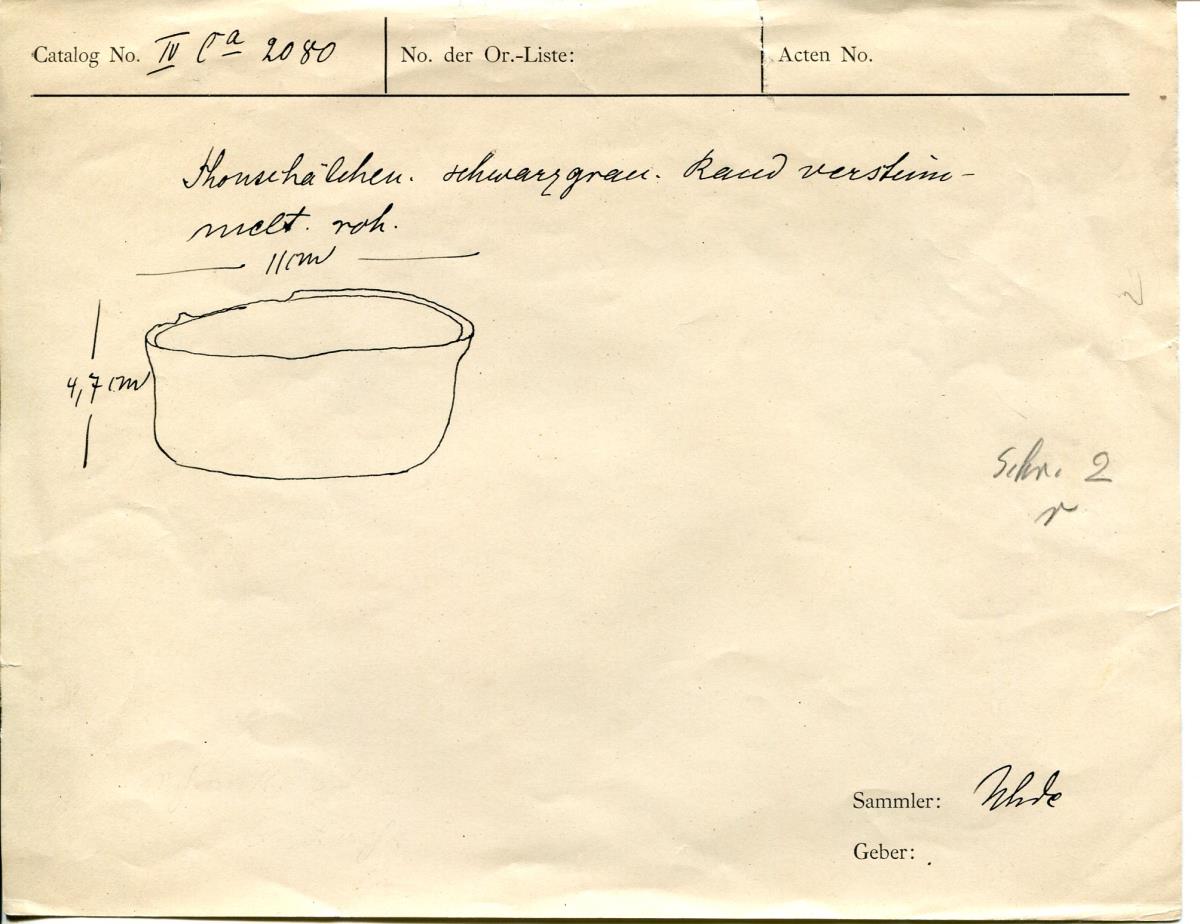 Catalog No. IV Ca 2080 No. der Or.-Liste: Acten No.
Thonschälchen. schwarzgrau. Rand verstüm-
melt. roh.
11 cm
4,7 cm
Schr. 2
Sammler: Uhde
Geber: